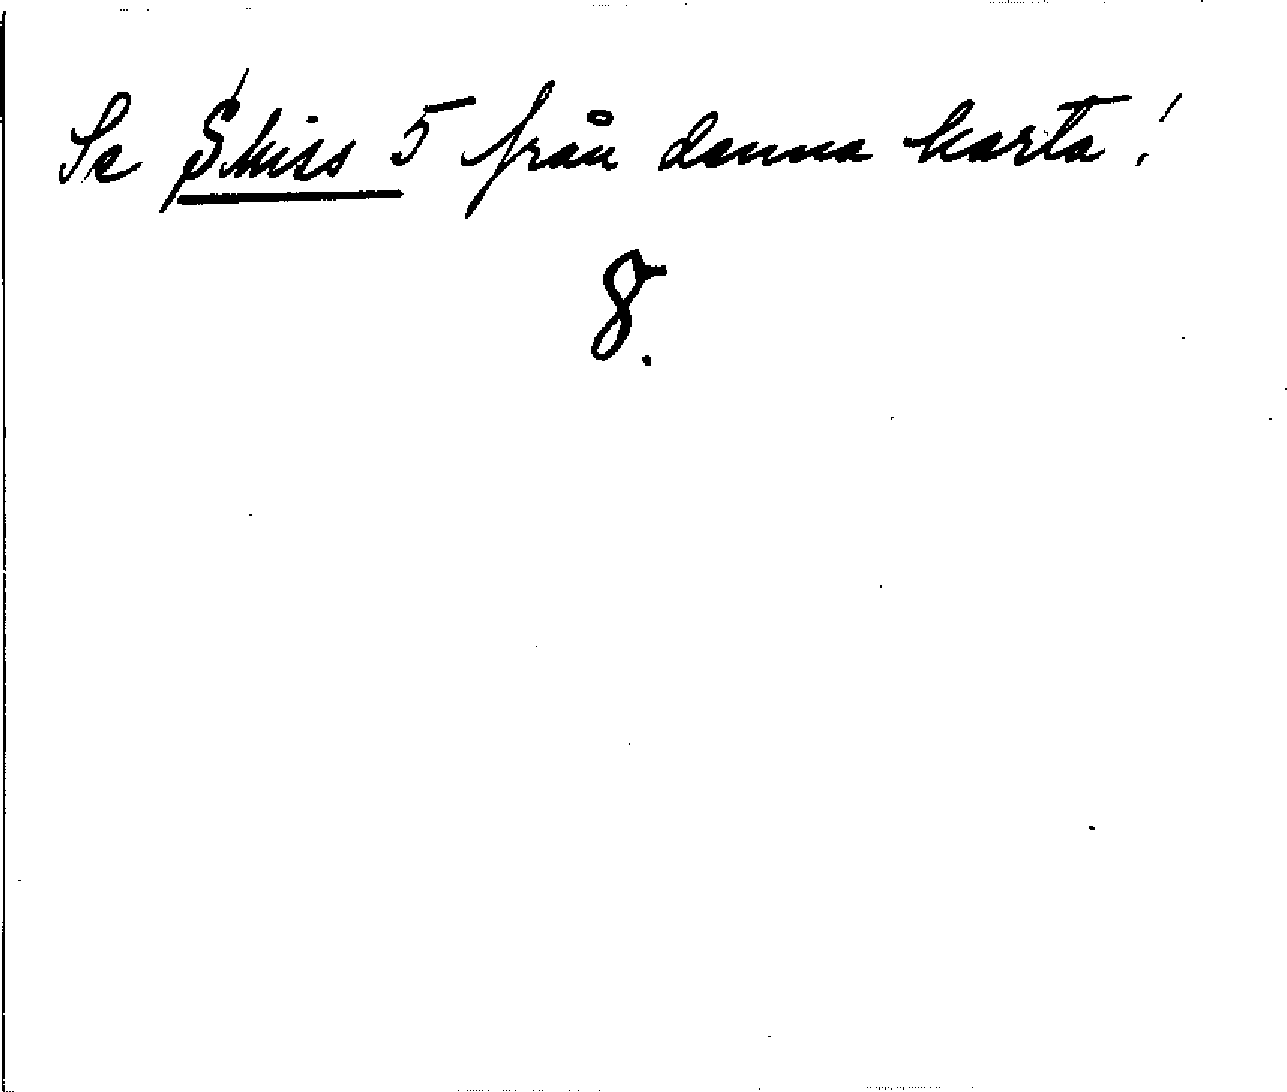 Se Skiss 5 från denna karta!
8.